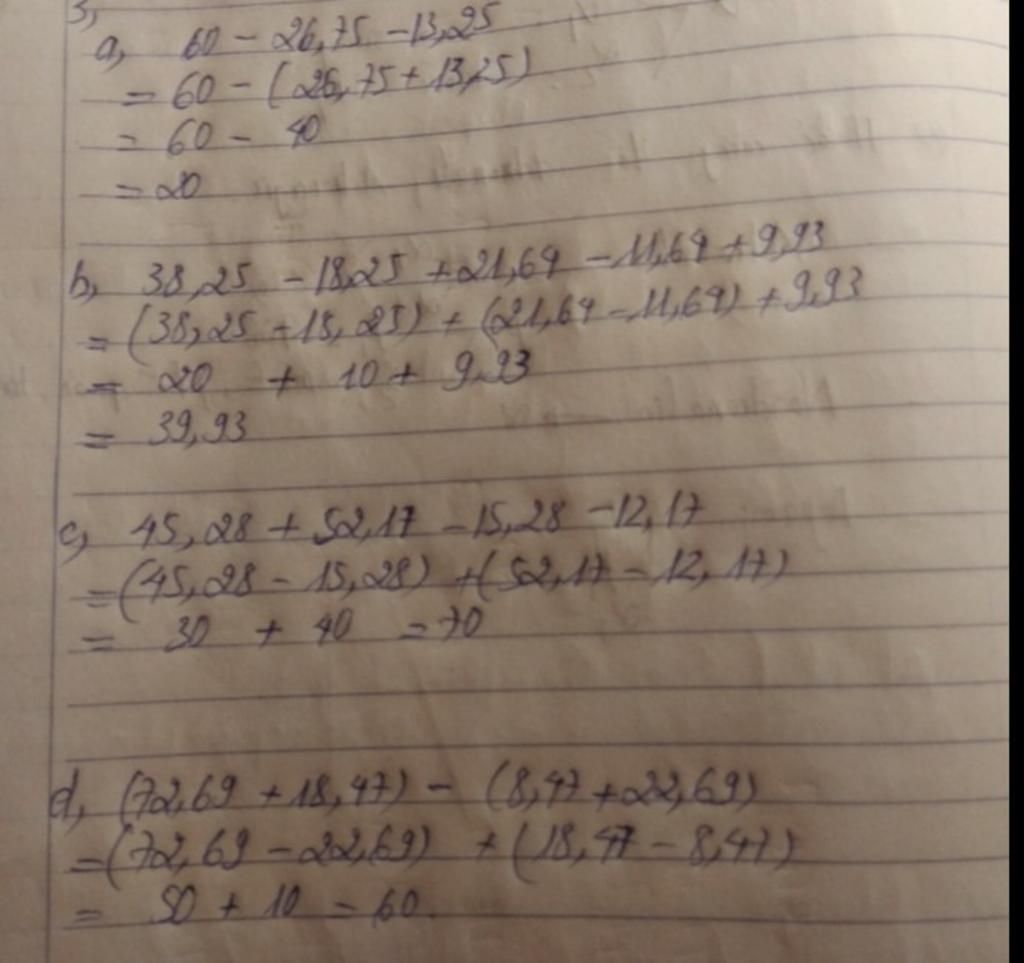 3,
a, 60 - 26,75 - 13,25
= 60 - (26,75 + 13,25)
= 60 - 40
= 20
b, 38,25 - 18,25 + 21,64 - 11,64 + 9,93
= (38,25 - 18,25) + (21,64 - 11,64) + 9,93
= 20 + 10 + 9,93
= 39,93
c, 45,28 + 52,17 - 15,28 - 12,17
= (45,28 - 15,28) + (52,17 - 12,17)
= 30 + 40 = 70
d, (72,69 + 18,47) - (8,47 + 22,69)
= (72,69 - 22,69) + (18,47 - 8,47)
= 50 + 10 = 60